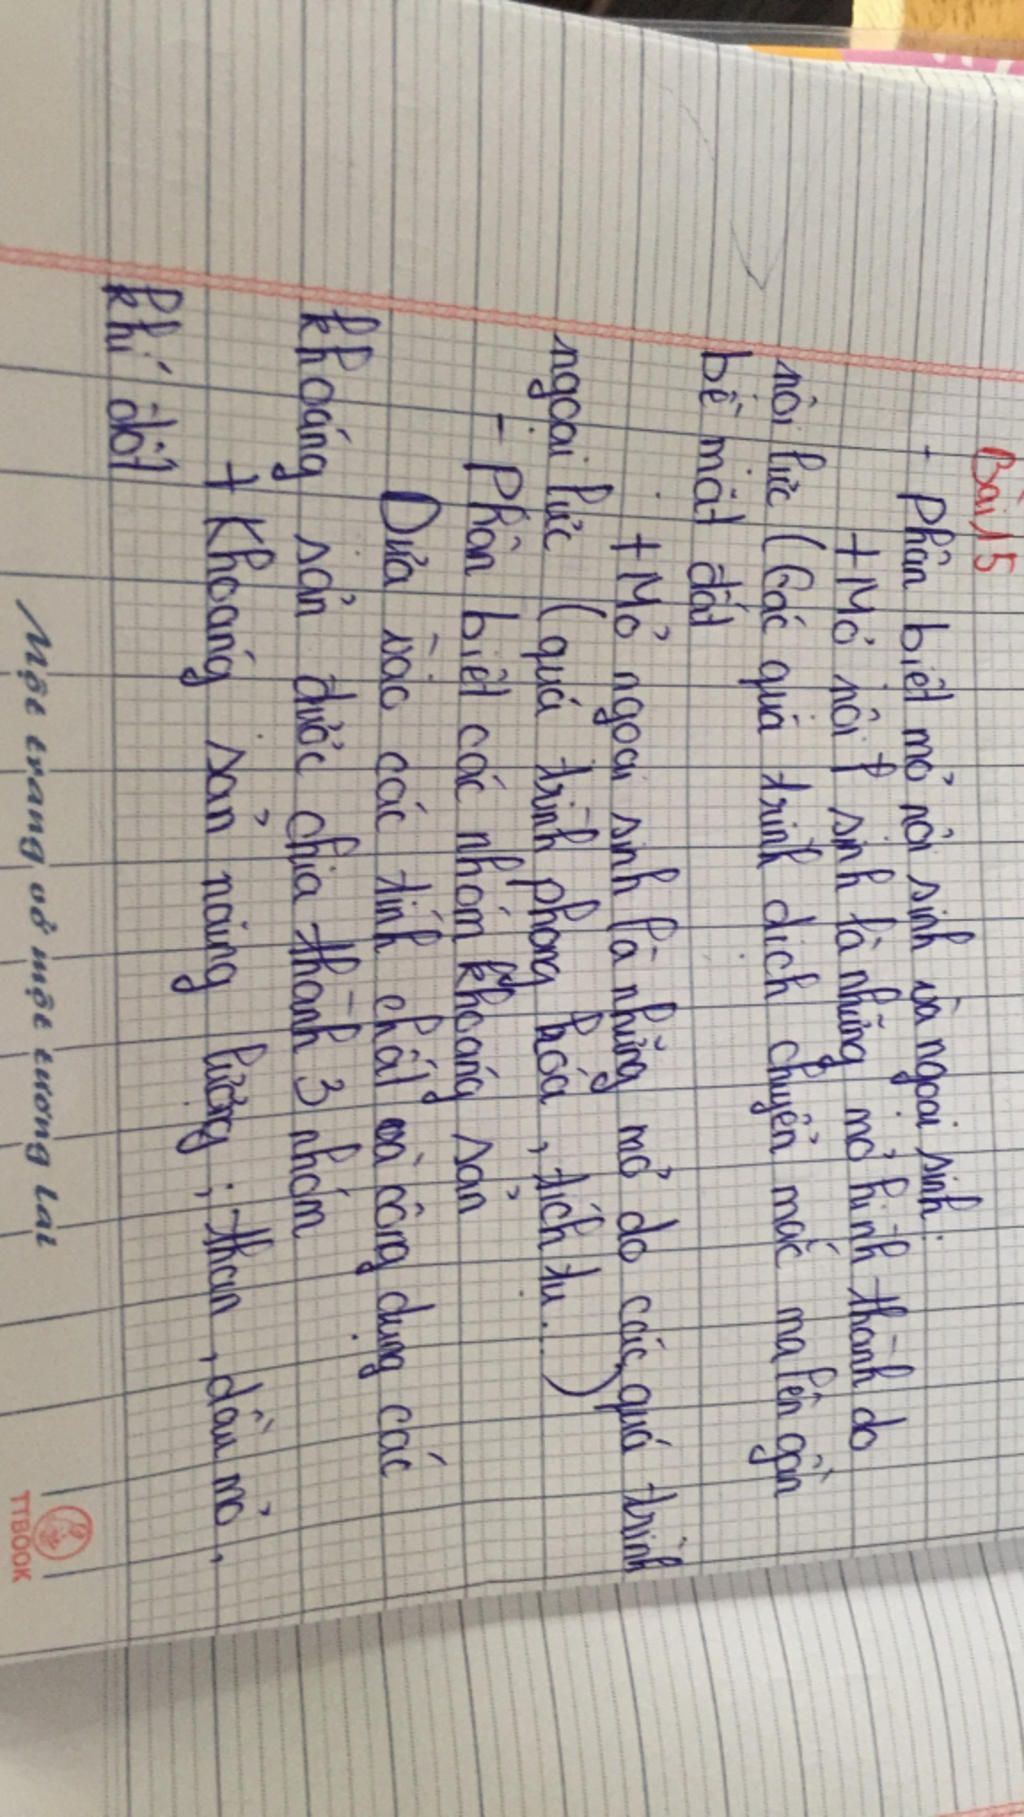 Bài 15
- Phân biệt mỏ nội sinh và ngoại sinh.
+ Mỏ nội sinh là những mỏ hình thành do
nội lực (Các quá trình dịch chuyển mắc ma lên gần
bề mặt đất
+ Mỏ ngoại sinh là những mỏ do các quá trình
ngoại lực (quá trình phong hóa, tích tụ...)
- Phân biệt các nhóm khoáng sản
Dựa vào các tính chất và công dụng các
khoáng sản được chia thành 3 nhóm
+ Khoáng sản năng lượng; than, dầu mỏ,
khí đốt
Một trang vở một tương lai
TTBOOK